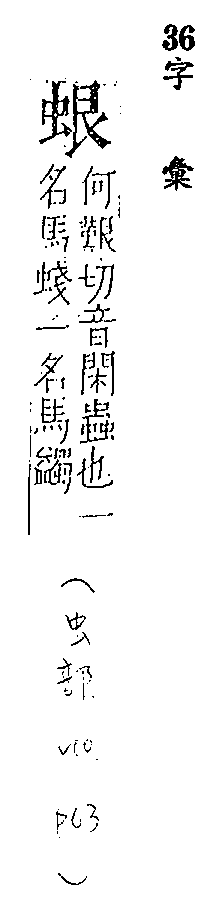 36字彙
蛝
何艱切音閑蟲也一
名馬䗃一名馬蠲
(虫部 v10 p63)